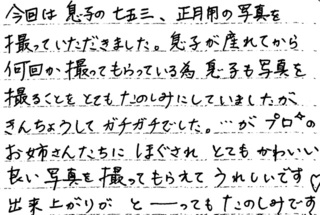 今回は息子の七五三、正月用の写真を
撮っていただきました。息子が産れてから
何回か撮ってもらっている為息子も写真を
撮ることをとてもたのしみにしていましたが
きんちょうしてガチガチでした。…がプロ☆の
お姉さんたちにほぐされとてもかわいい
良い写真を撮ってもらえてうれしいです♡
出来上がりがと――ってもたのしみです